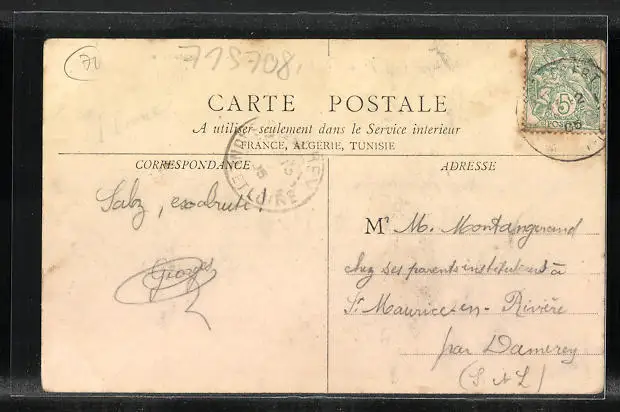 71
715708.
CARTE POSTALE
A utiliser seulement dans le Service intérieur
FRANCE, ALGÉRIE, TUNISIE
CORRESPONDANCE
ADRESSE
5
Mr M. Montangerand
chez ses parents instituteurs à
St Maurice-en-Rivière
par Damerey
(S & L)
Georges